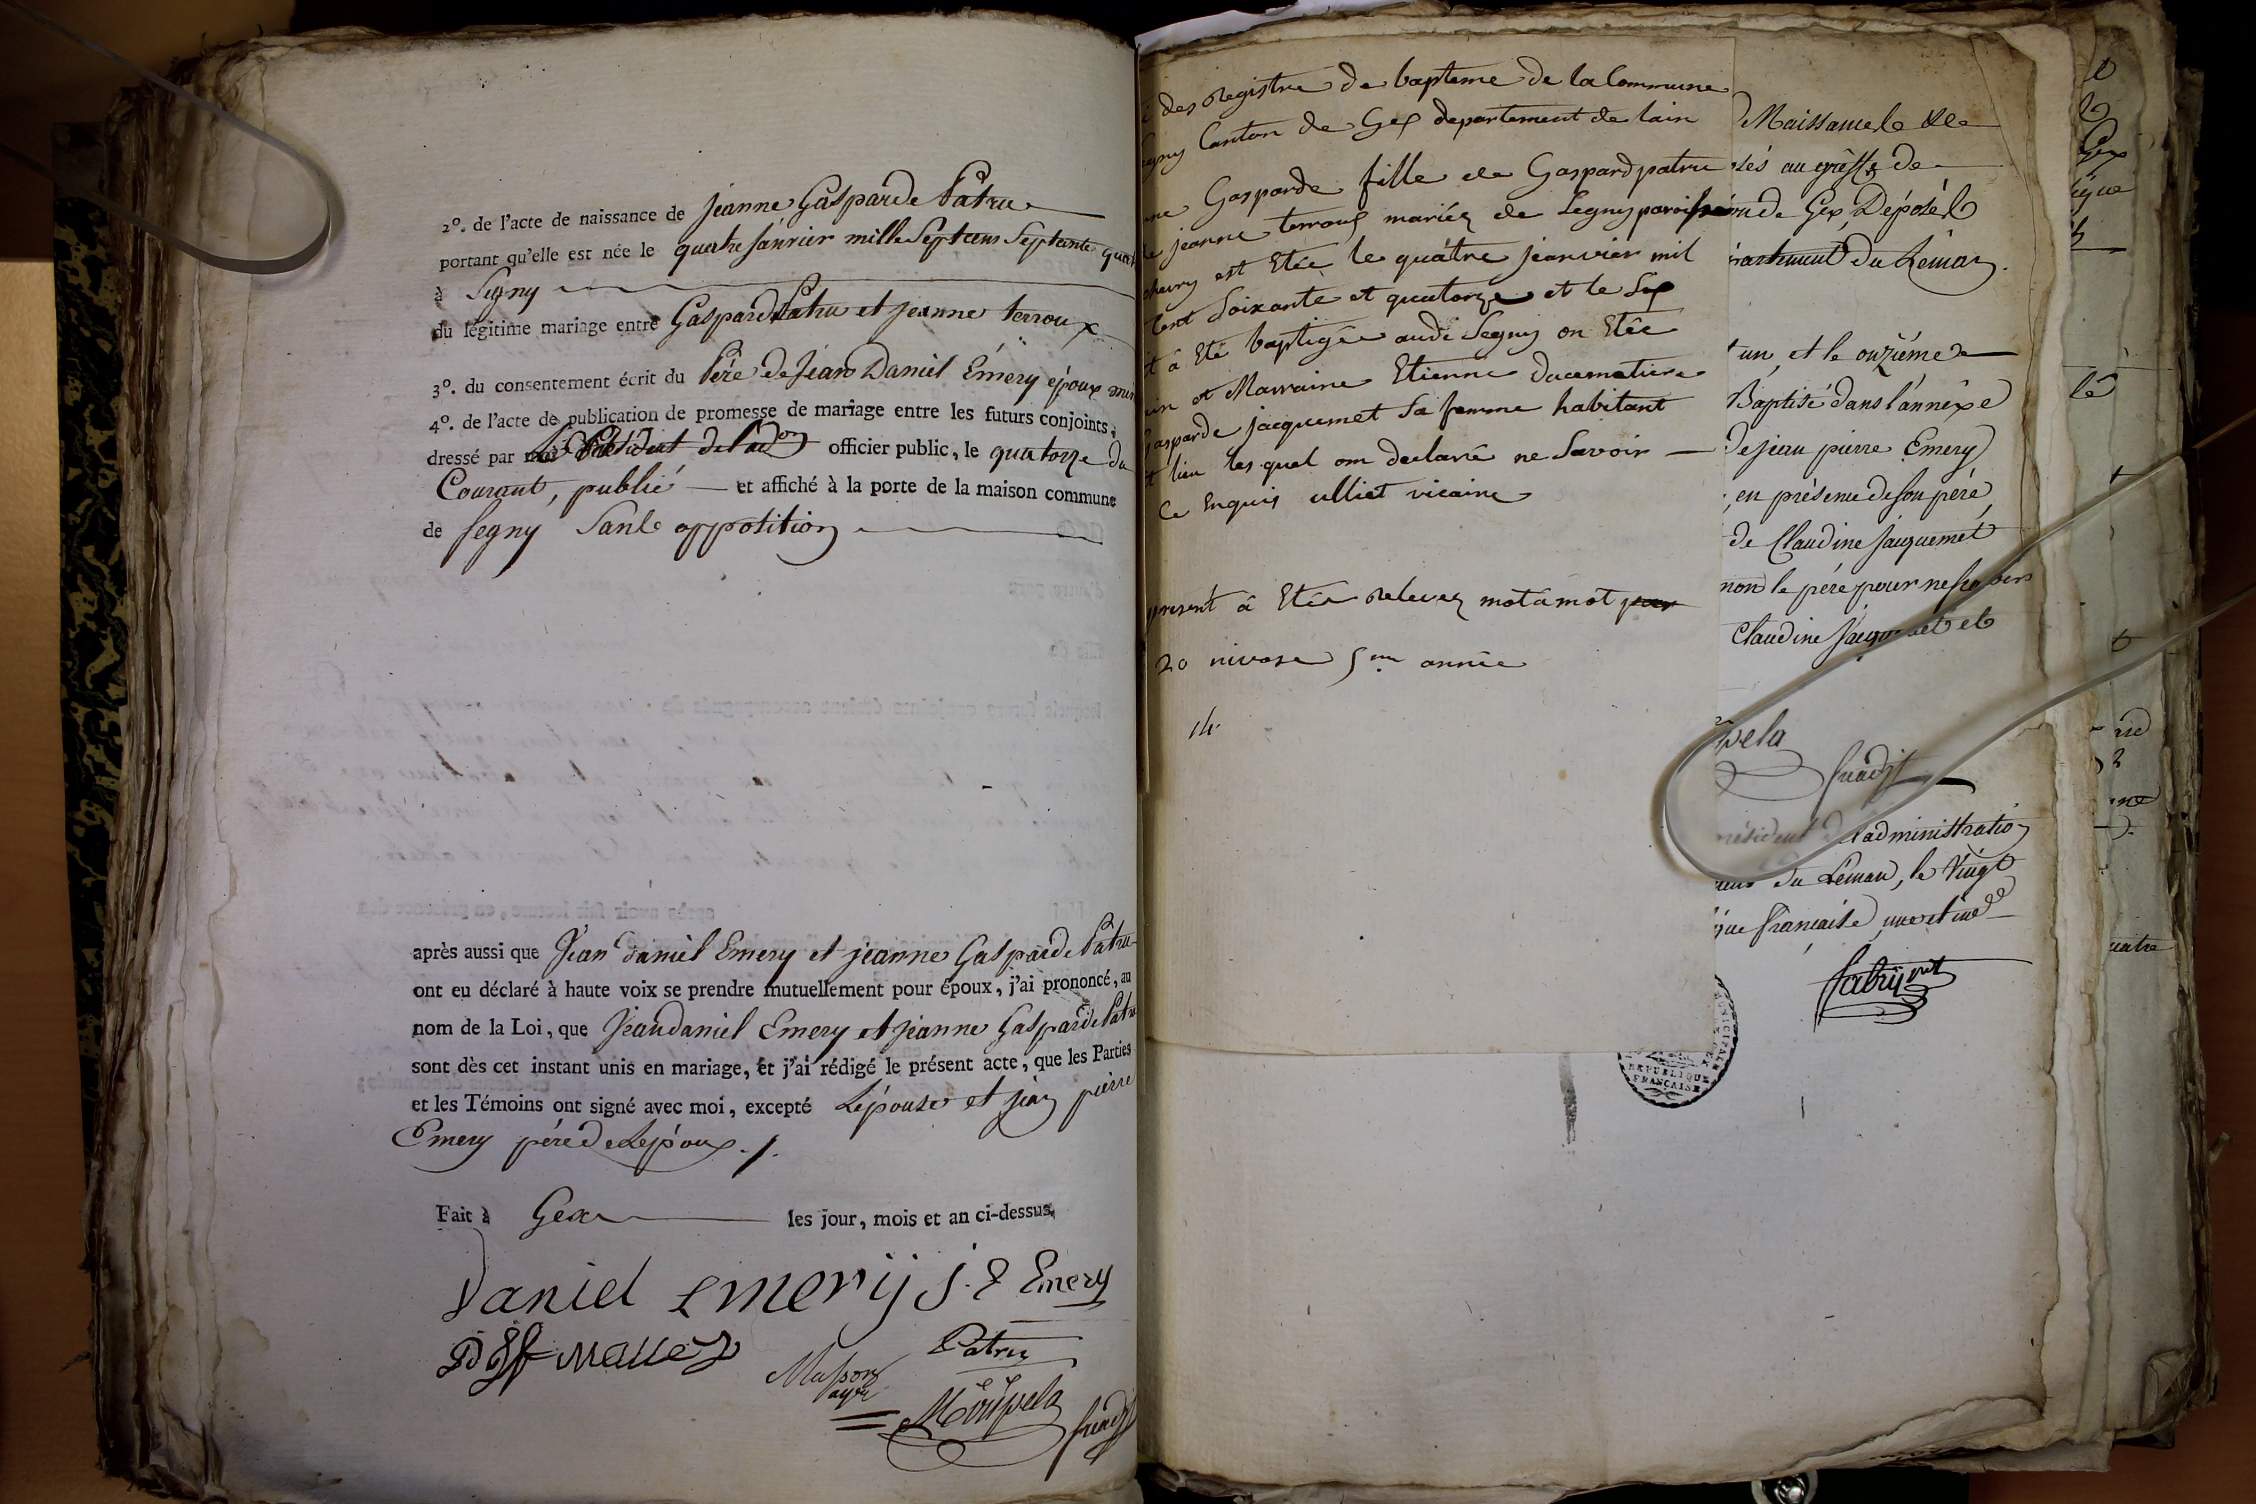 2°. de l'acte de naissance de jeanne Gasparde Patru
portant qu'elle est née le quatre janvier mille Septcens Septante quat
à Segny
du légitime mariage entre Gaspard Patru et jeanne terroux
3°. du consentement écrit du Père de Jean Daniel Emery époux
4°. de l'acte de publication de promesse de mariage entre les futurs conjoints,
dressé par Le Président de l'adon officier public, le quatorze du
Courant, publié et affiché à la porte de la maison commune
de segny Sans opposition
après aussi que Jean daniel Emery et jeanne Gasparde Patru
ont eu déclaré à haute voix se prendre mutuellement pour époux, j'ai prononcé, au
nom de la Loi, que Jean daniel Emery et jeanne Gasparde Patru
sont dès cet instant unis en mariage, et j'ai rédigé le présent acte, que les Parties
et les Témoins ont signé avec moi, excepté L'épouse et jean pierre
Emery père de Lepoux ./.
Fait à Gex les jour, mois et an ci-dessus.
Daniel Emery J. Emery
Patru
des Registre de bapteme de la Commune
Canton de Gex departement de lain
Gasparde fille de Gaspard patru
jeanne terroux mariéz de Segny paroisse
est Etée le quatre jeanvier mil
cent Soixante et quatorze et le Six
à Eté baptigée audi Segny on Etée
et Marraine Etienne ducematiere
gasparde jacquemet Sa femme habitant
lieu les quel on declaré ne Savoir
Ce Enquis ulliet vicaire
present à Etée Relevez mot à mot
20 nivose 5me année
14
Naissance de
au greffe de
de Gex, Déposé
du Léman.
un, et le onzième
Baptisé dans l'annèxe
de jean pierre Emery
, en présence de son père
de Claudine jacquemet
non le père pour ne
Claudine et
administration
du Léman, le Vingt
que française, une et ind
Fabry
REPUBLIQUE
FRANÇAISE